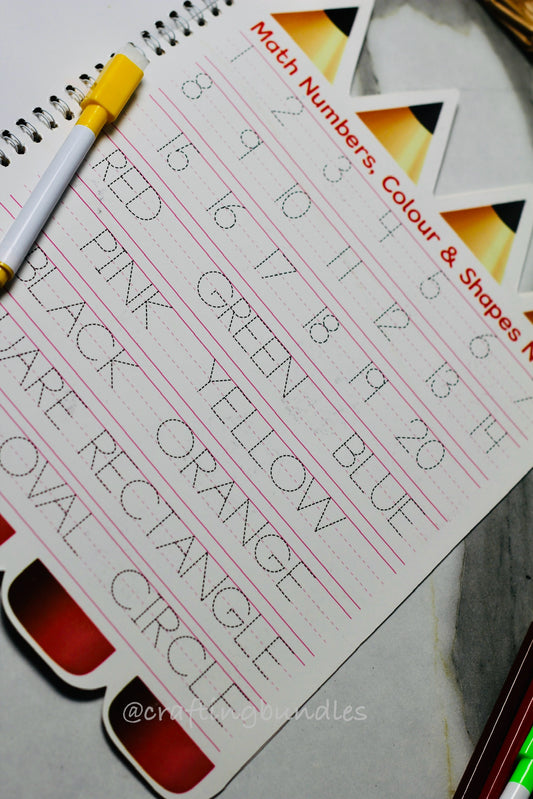 Math Numbers, Colour & Shapes
1 2 3 4 5 6 7
8 9 10 11 12 13 14
15 16 17 18 19 20
RED GREEN BLUE
PINK YELLOW
BLACK ORANGE
RECTANGLE
OVAL CIRCLE
@craftingbundles